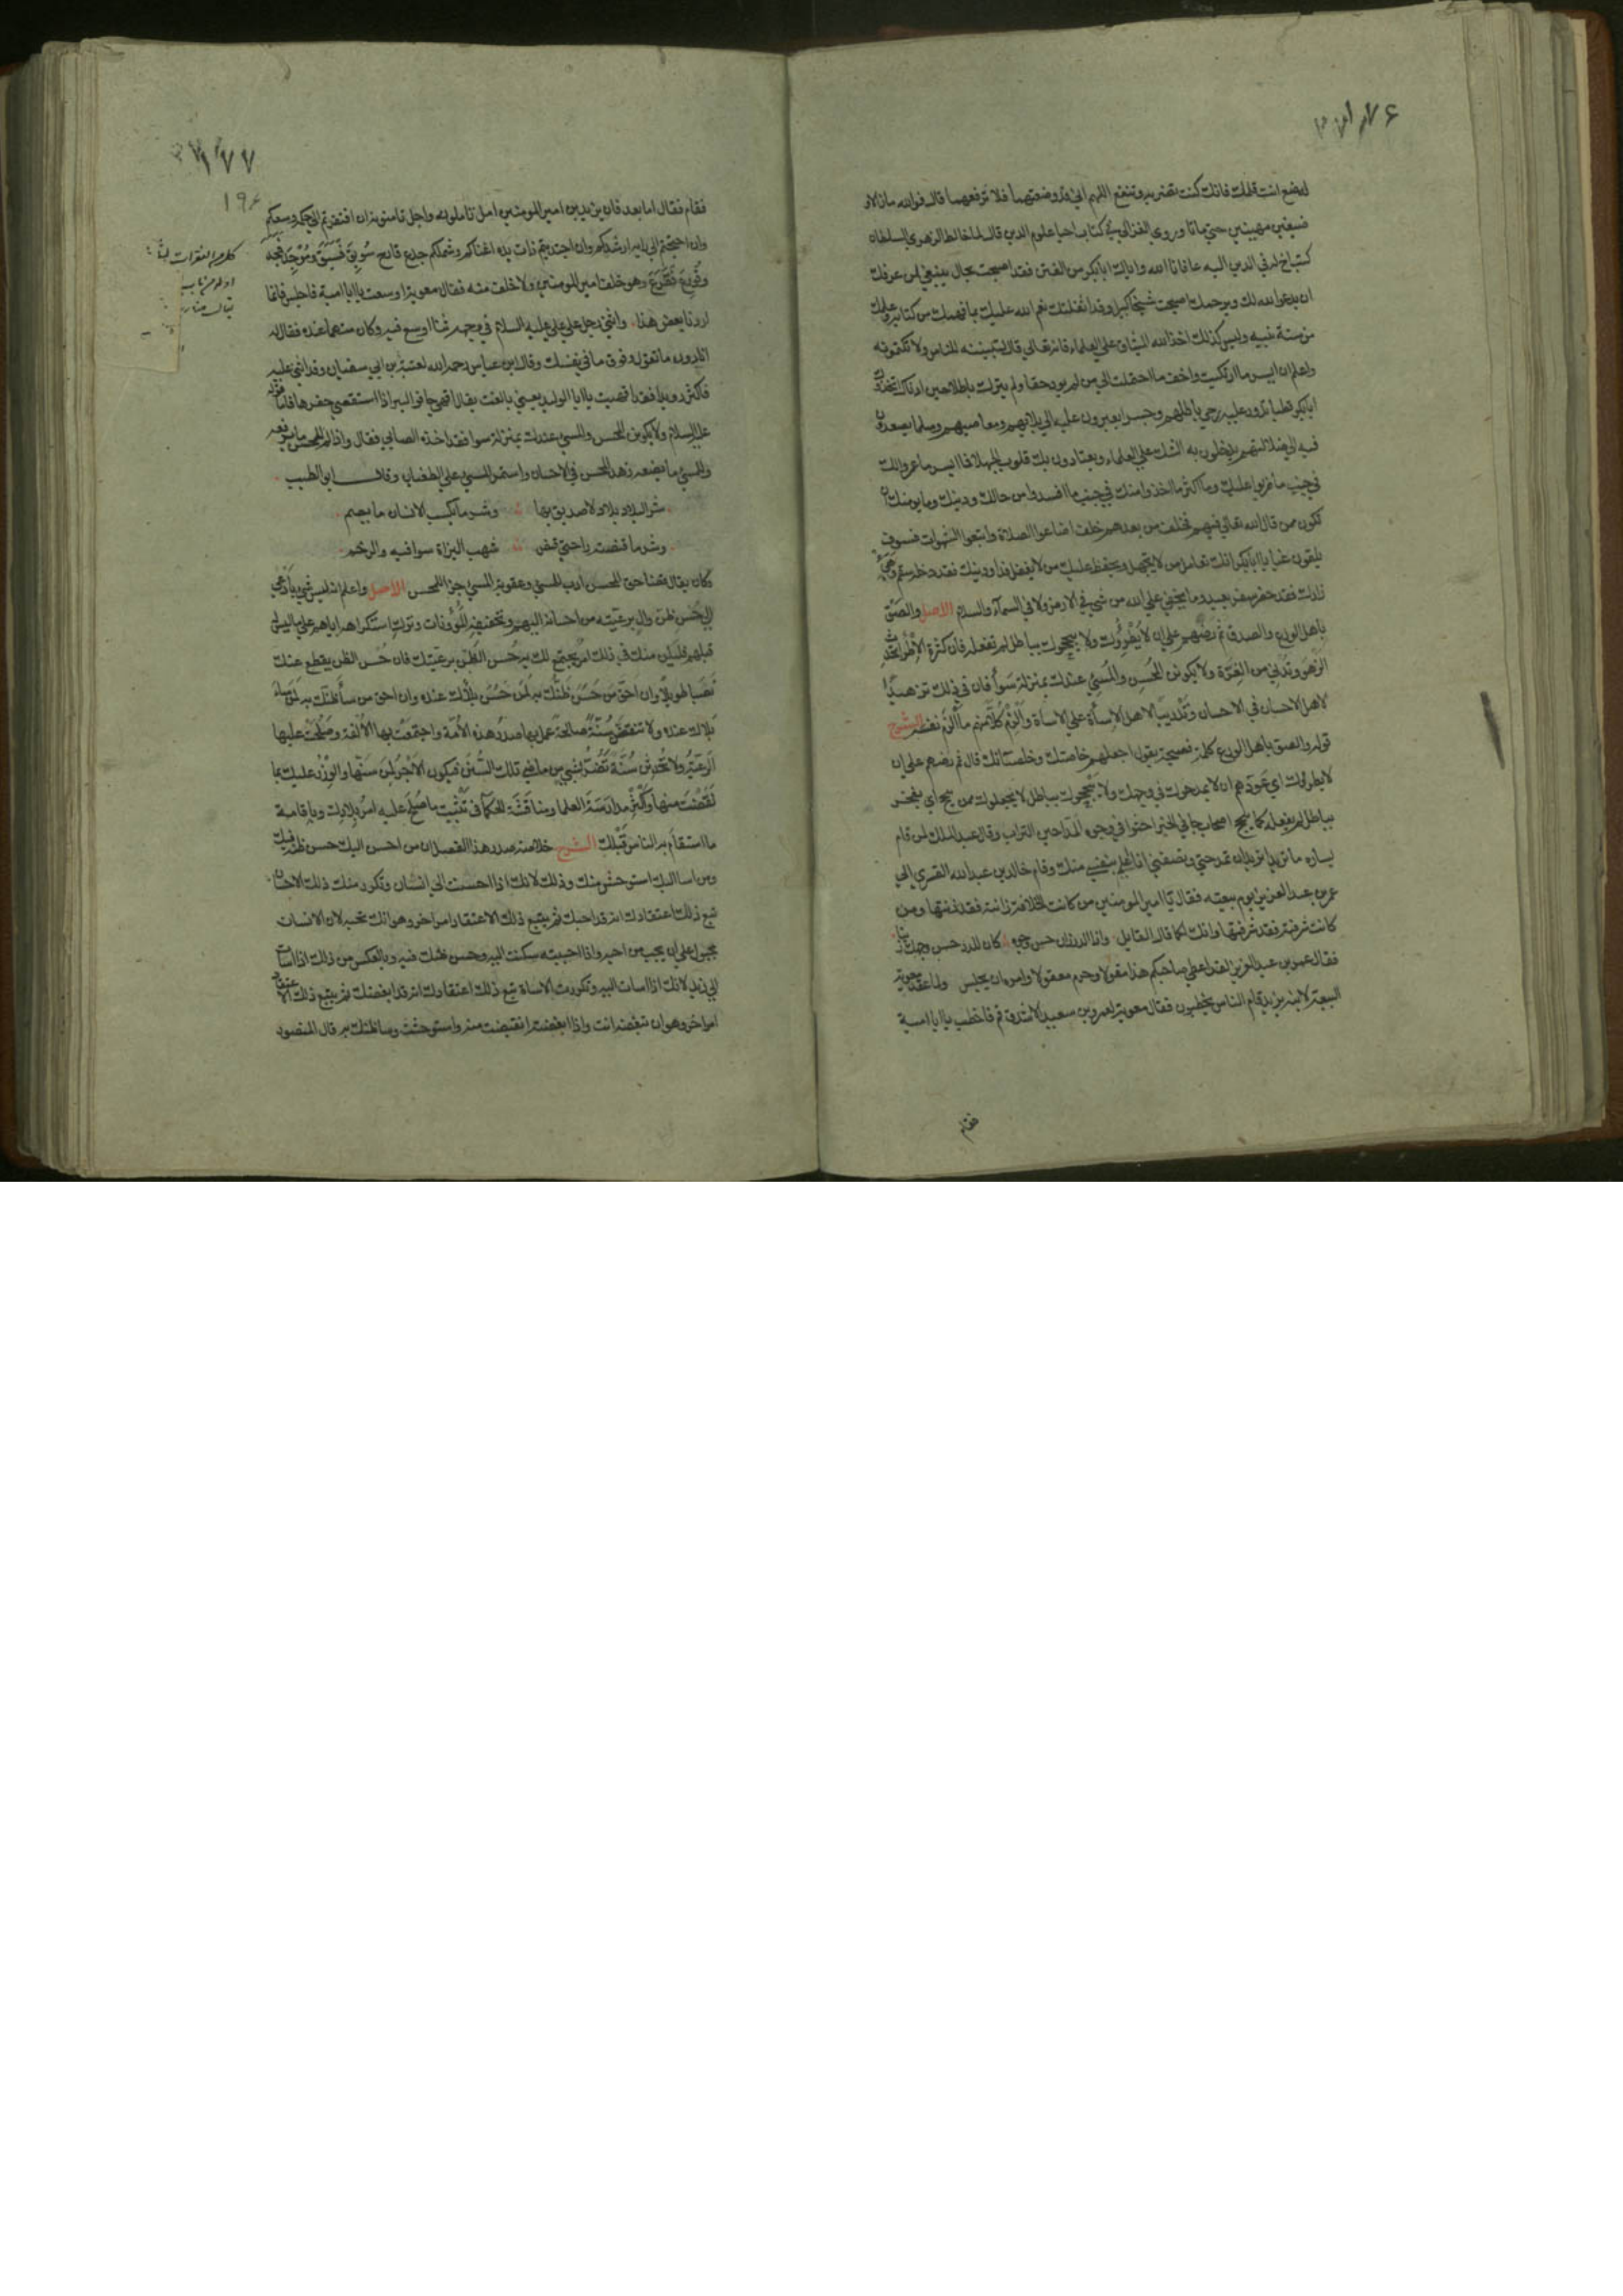 ليضع انت قلمك فانك كنت تضر به وتنفع اللهم اني قد وضعتهما فلا ترفعهما قال فوالله ما زالا
ضيقين مهينين حتي ماتا وروي الغزالي في كتاب احيا علوم الدين قال لما خالط الزهري السلطان
كتب اخ له في الدين اليه عافانا الله واياك ابا بكر من الفتن فقد اصبحت بحال ينبغي لمن عرفك
ان يدعوا الله لك ويرحمك اصبحت شيخا كبيرا وقد اثقلتك نعم الله عليك بما فهمك من كتابه وعلمك
من سنة نبيه وليس كذلك اخذ الله الميثاق علي العلماء فانه تعالي قال لتبيننه للناس ولا تكتمونه
واعلم ان ايسر ما ارتكبت واخف ما احتملت انك الي من لم يود حقا ولم يترك باطلا حين ادناك اتخذوك
ابا بكر قطبا تدور عليه رحي باطلهم وجسرا يعبرون عليه الي بلائهم ومعاصيهم وسلما يصعدون
فيه الي ضلالتهم يدخلون بك الشك علي العلماء ويقتادون بك قلوب الجهلا فما ايسر ما عمروا لك
في جنب ما خربوا عليك وما اكثر ما اخذوا منك في جنب ما افسدوا من حالك ودينك وما يومنك ان
تكون ممن قال الله تعالي فيهم فخلف من بعدهم خلف اضاعوا الصلاة واتبعوا الشهوات فسوف
يلقون غيا يا ابا بكر انك تعامل من لا يجهل ويحفظ عليك من لا يغفل فداو دينك فقد دخله سقم وهيئ
زادك فقد حضر سفر بعيد وما يخفي علي الله من شي في الارض ولا في السمآء والسلام الاصل والصق
باهل الورع والصدق ثم رضهم علي ان لا يطروك ولا يبجحوك بباطل لم تفعله فان كثرة الاطراء تحدث
الزهو وتدني من الغرة ولا يكونن المحسن والمسيئ عندك بمنزلة سوا فان في ذلك تزهيدا
لاهل الاحسان في الاحسان وتدريبا لاهل الاسأة علي الاساة والزم كلا منهم ما الزم نفسه الشرح
قوله والصق باهل الورع كلمة فصيحة يقول اجعلهم خاصتك وخلصائك قال ثم رضهم علي ان
لا يطروك اي عودهم ان لا يمدحوك في وجهك ولا يبجحوك بباطل لا يجعلوك ممن يبجح اي يفخر
بباطل لم يفعله كما يبجح اصحاب جا في الخبر احثوا في وجوه المداحين التراب وقال عبد الملك لمن قام
يساره ما تريد اتريد ان تمدحني وتصفني انا اعلم بنفسي منك وقام خالد بن عبد الله القسري الي
عمر بن عبد العزيز يوم بيعته فقال يا امير المومنين من كانت الخلافة زانته فقد زنتها ومن
كانت شرفته فقد شرفتها وانك لكما قال القايل واذا الدر زان حسن وجوه كان للدر حسن وجهك زينا
فقال عمر بن عبد العزيز لقد اعطي صاحبكم هذا مقولا وحرم معقولا وامره ان يجلس ولما عقد معوية
البيعة لابنه يزيد قام الناس يخطبون فقال معوية لعمرو بن سعيد الاشدق قم فاخطب يا ابا امية
فقام
١٧٧
١٩٤
فقام فقال اما بعد فان يزيد بن امير المومنين امل تاملونه واجل تامنونه ان افتقرتم الي حلمه وسعكم
وان احتجتم الي رايه ارشدكم وان اجتديتم ذات يده اغناكم وشملكم جذع قارح سوبق فسبق وموجد فمجد
وقورع فقرع وهو خلف امير المومنين ولا خلف منه فقال معوية اوسعت يا ابا امية فاجلس فانما
اردنا بعض هذا واثني رجل علي علي عليه السلام في وجهه ثناء اوسع فيه وكان متهما عنده فقال له
انا دون ما تقول وفوق ما في نفسك وقال ابن عباس رحمه الله لعتبة بن ابي سفيان وقد اثني عليه
فاكثر رويدا فقد امهيت يا ابا الوليد يعني بالغت يقال امهي حافر البير اذا استقصي حفرها فاما قوله
عليه السلام ولا يكونن المحسن والمسيئ عندك بمنزلة سوا فقد اخذه الصابي فقال واذا لم يكن للمحسن ما يرفعه
وللمسيئ ما يضعه زهد المحسن في الاحسان واستمر المسيئ علي الطغيان وقال ابو الطيب
شر البلاد بلاد لا صديق بها وشر ما يكسب الانسان ما يصم
وشر ما قنصته راحتي قنص شهب البزاة سوا فيه والرخم
وكان يقال قضا حق المحسن ادب للمسيئ وعقوبة المسيئ جزا للمحسن الاصل واعلم انه ليس شي بادعي
الي حسن ظن وال برعيته من احسانه اليهم وتخفيفه المؤونات وترك استكراهه اياهم علي ما ليس له
قبلهم فليكن منك في ذلك امر يجتمع لك به حسن الظن برعيتك فان حسن الظن يقطع عنك
نصبا طويلا وان احق من حسن ظنك به لمن حسن بلاءك عنده وان احق من ساء ظنك به لمن ساء
بلاءك عنده ولا تنقض سنة صالحة عمل بها صدور هذه الامة واجتمعت بها الالفة وصلحت عليها
الرعية ولا تحدثن سنة تضر بشي من ماضي تلك السنن فيكون الاجر لمن سنها والوزر عليك بما
نقضت منها واكثر مدارسة العلما ومناقشة الحكما في تثبيت ما صلح عليه امر بلادك وباقامة
ما استقام به الناس قبلك الشرح خلاصة صدر هذا الفصل ان من احسن اليك حسن ظنه فيك
ومن اسا اليك استوحش منك وذلك لانك اذا احسنت الي انسان وتكرر منك ذلك الاحسان
تبع ذلك اعتقادك انه قد احبك ثم يتبع ذلك الاعتقاد امر اخر وهو انك تحبه لان الانسان
مجبول علي ان يحب من احبه واذا احببته سكنت اليه وحسن ظنك فيه وبالعكس من ذلك اذا اسات
الي زيد لانك اذا اسات اليه وتكررت الاساة تبع ذلك اعتقادك انه قد ابغضك ثم يتبع ذلك الاعتقاد
امر اخر وهو ان تبغضه انت واذا ابغضته انقبضت منه واستوحشت وساء ظنك به قال المنصور